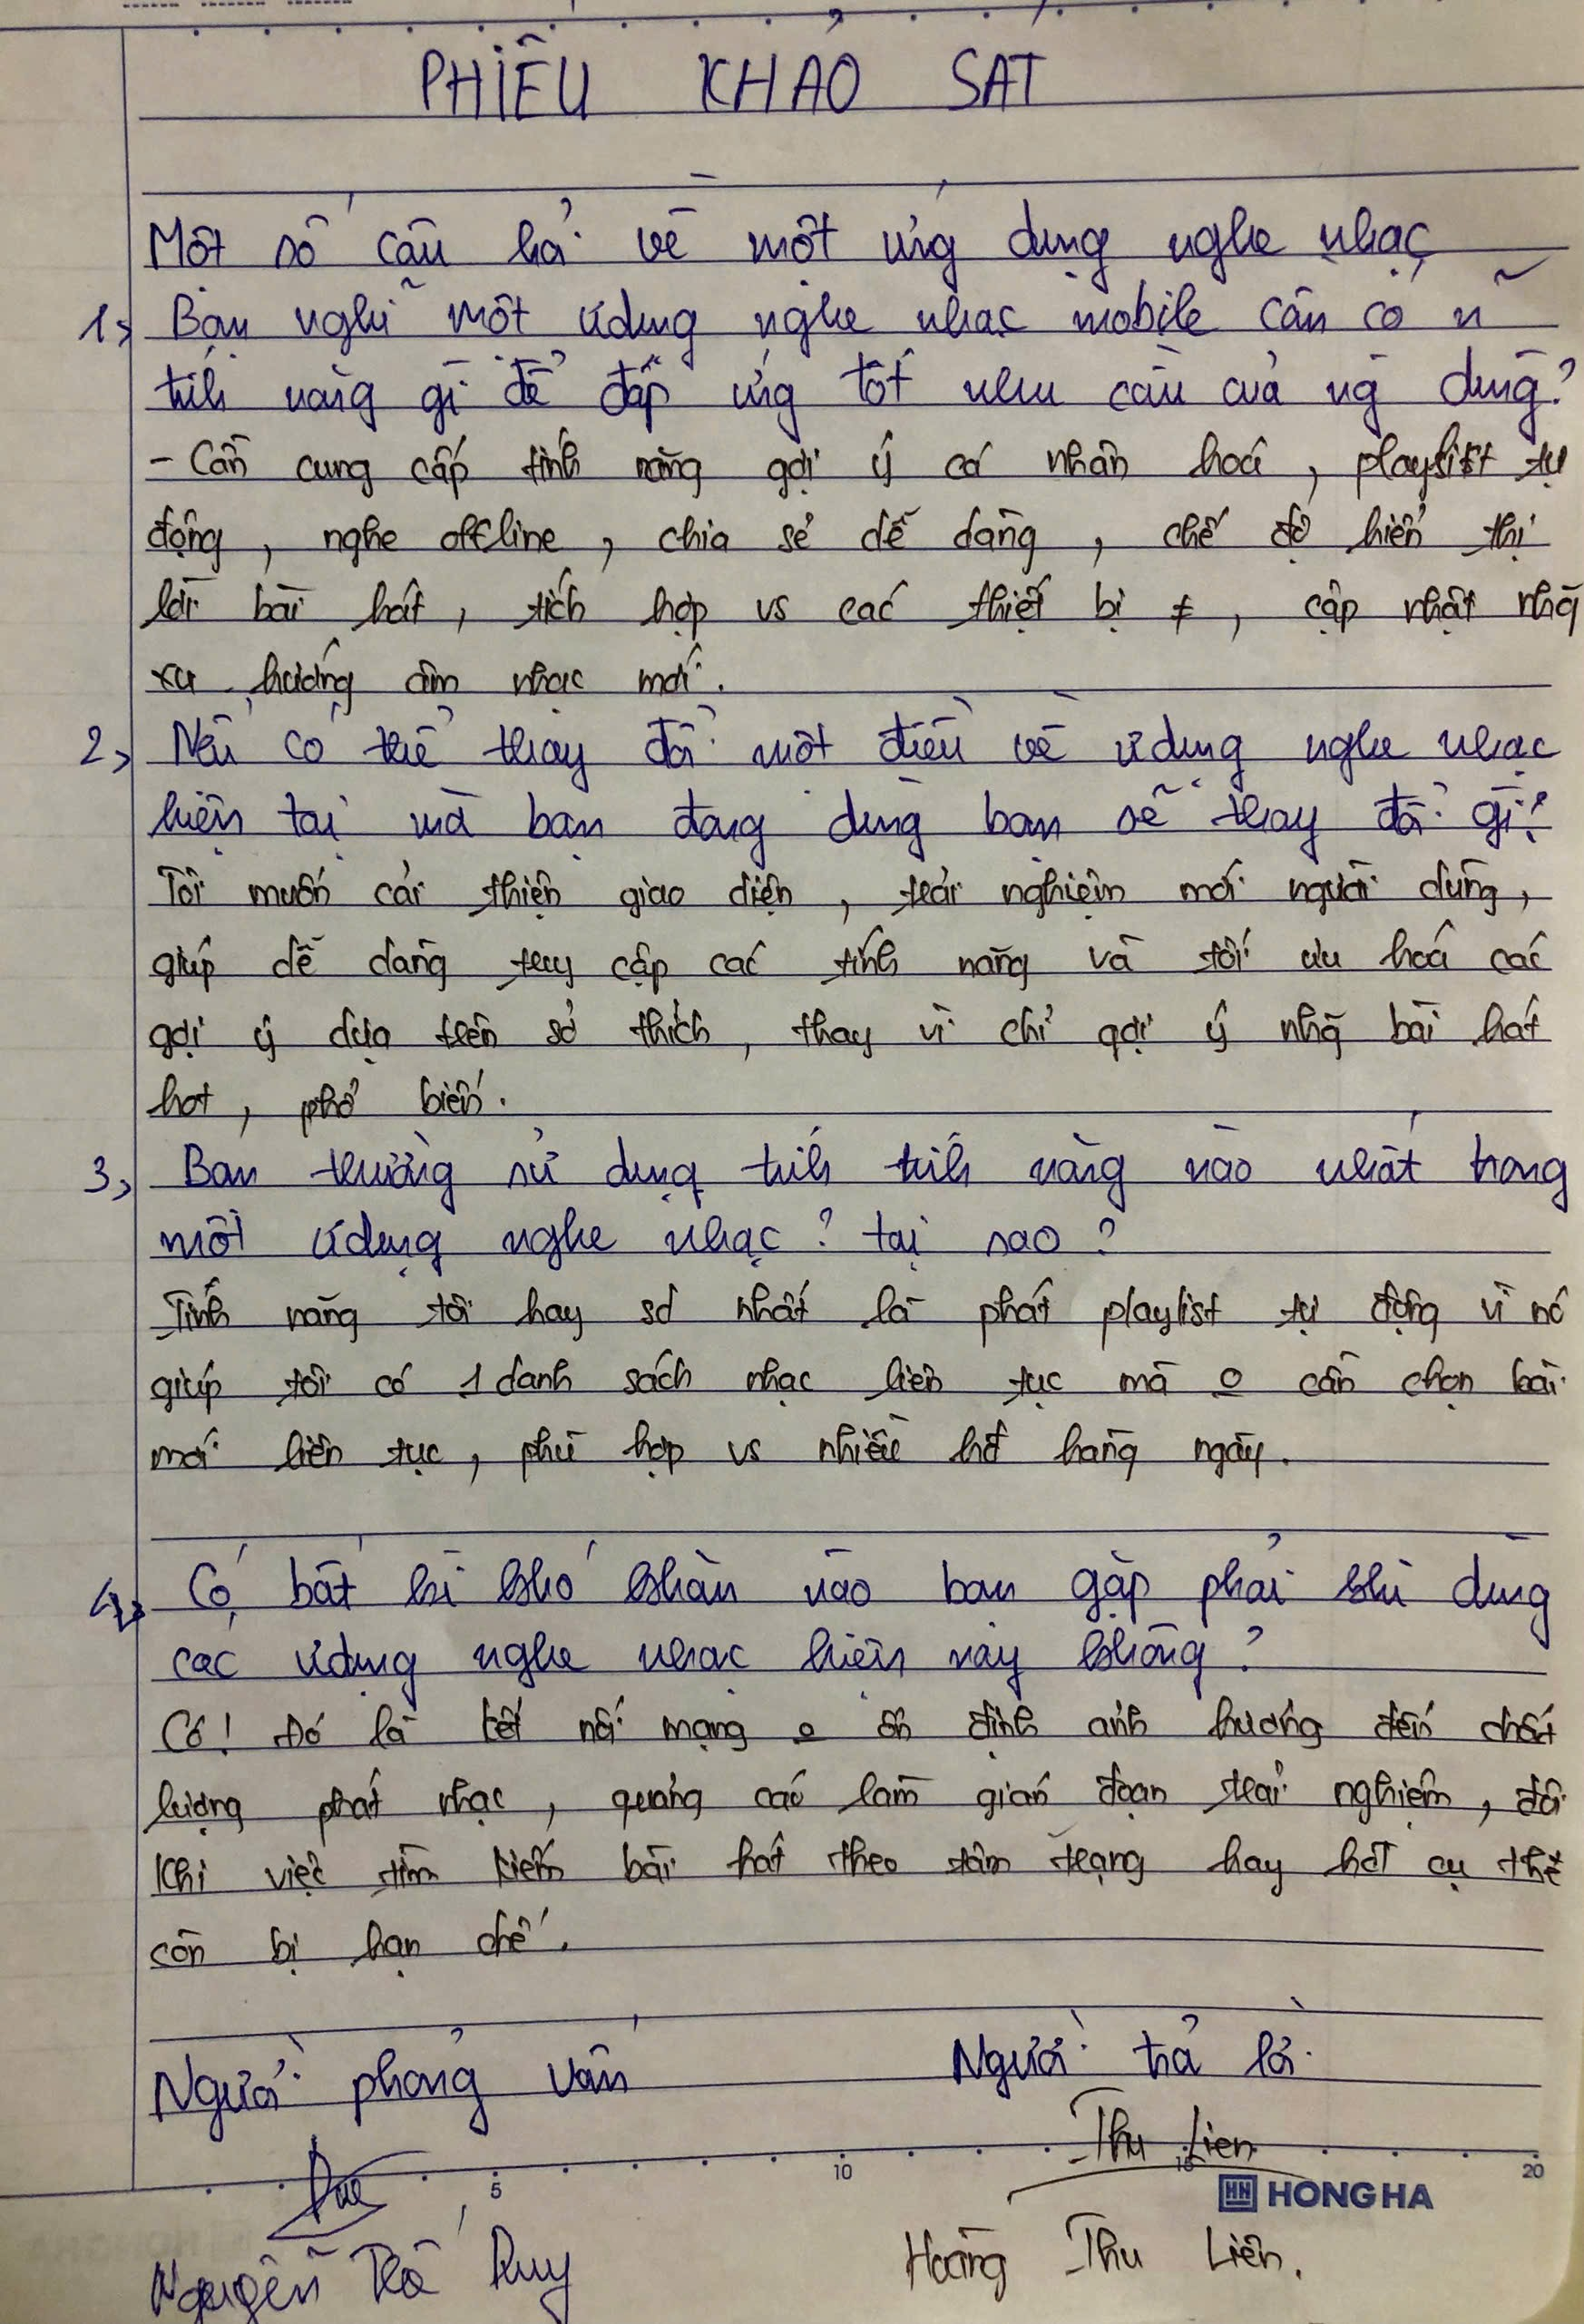 PHIẾU KHẢO SÁT
Một số câu hỏi về một ứng dụng nghe nhạc
1, Bạn nghĩ một ứdụng nghe nhạc mobile cần có n~
tính năng gì để đáp ứng tốt nhu cầu của ng dùng?
- Cần cung cấp tính năng gợi ý cá nhân hoá, playlist tự
động, nghe offline, chia sẻ dễ dàng, chế độ hiển thị
lời bài hát, tích hợp vs các thiết bị ≠, cập nhật nhg~
xu hướng âm nhạc mới.
2, Nếu có thể thay đổi một điều về ứdụng nghe nhạc
hiện tại mà bạn đang dùng bạn sẽ thay đổi gì?
Tôi muốn cải thiện giao diện, trải nghiệm mới người dùng,
giúp dễ dàng truy cập các tính năng và tối ưu hoá các
gợi ý dựa trên sở thích, thay vì chỉ gợi ý nhg~ bài hát
hot, phổ biến.
3, Bạn thường sử dụng tính tính năng nào nhất trong
một ứdụng nghe nhạc? tại sao?
Tính năng tôi hay sd nhất là phát playlist tự động vì nó
giúp tôi có 1 danh sách nhạc liên tục mà o cần chọn bài
mới liên tục, phù hợp vs nhiều hđ hàng ngày.
4, Có bất kì khó khăn nào bạn gặp phải khi dùng
các ứdụng nghe nhạc hiện nay không?
Có! Đó là kết nối mạng o ổn định ảnh hưởng đến chất
lượng phát nhạc, quảng cáo làm gián đoạn trải nghiệm, đôi
khi việc tìm kiếm bài hát theo tâm trạng hay hđ cụ thể
còn bị hạn chế.
Người phỏng vấn Người trả lời
Thu Lien
5 10 15 20
HONG HA
Duy
Nguyễn Thế Duy Hoàng Thu Liên.